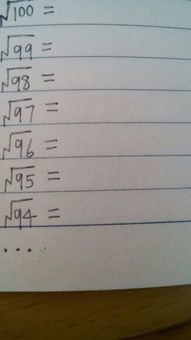 √100 =
√99 =
√98 =
√97 =
√96 =
√95 =
√94 =
...